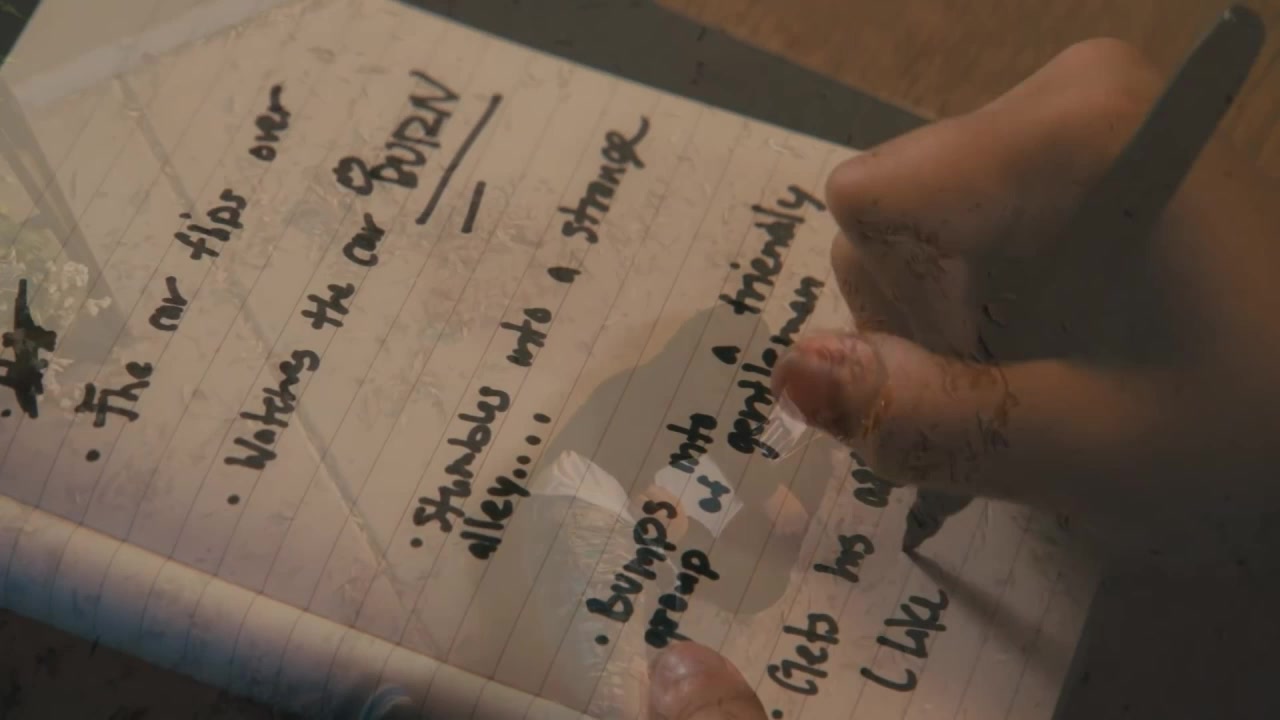 • The car flips over
• Watches the car BURN
• Stumbles into a strange
alley....
• Bumps into a friendly
group of gentleman
• Gets his
(Like